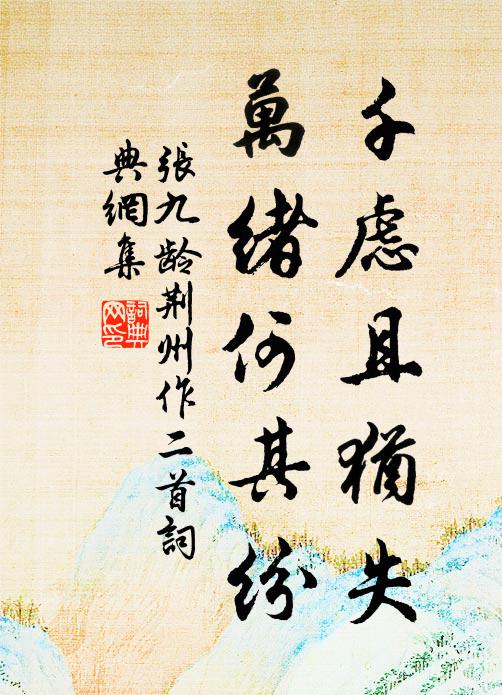 千慮且猶失
萬緒何其紛
張九齡荆州作二首詞
典網集
詞典
网印